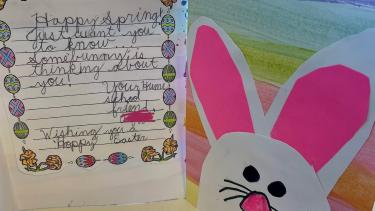 Happy Spring!
just want you
to know...
Somebunny is
thinking about
you!
Your Hume
school
friend,
Wishing you a
Happy Easter